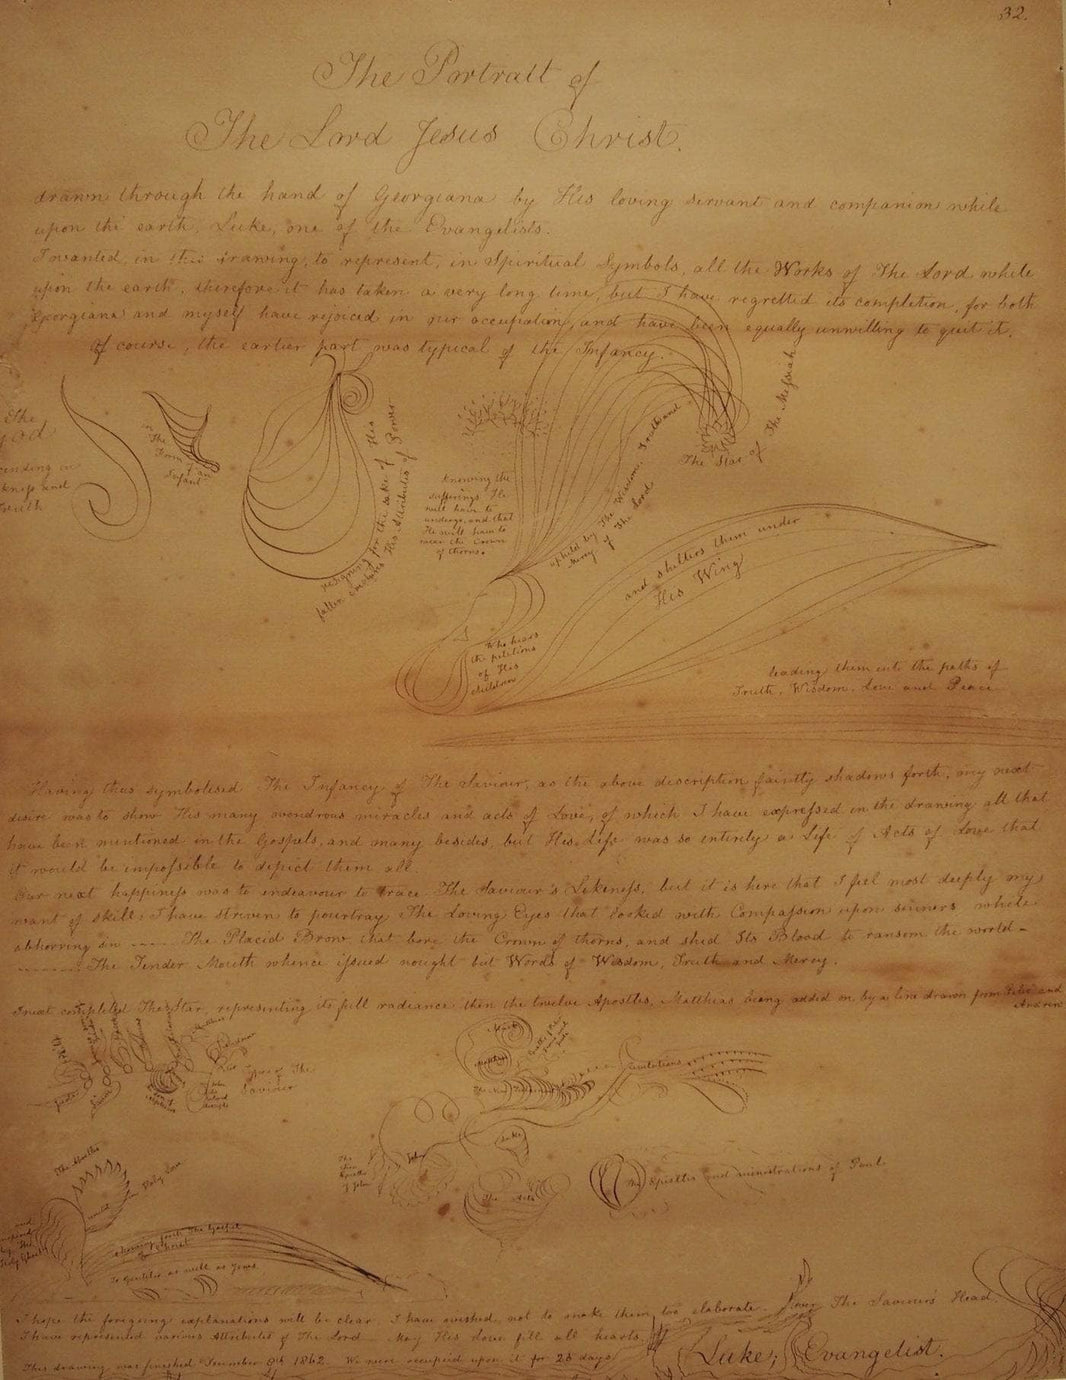 32.
The Portrait of
The Lord Jesus Christ.
drawn through the hand of Georgiana by His loving servant and companion while
upon the earth, Luke, one of the Evangelists.
I wanted, in this drawing, to represent, in Spiritual Symbols, all the Works of The Lord while
upon the earth, therefore it has taken a very long time, but I have regretted its completion, for both
Georgiana and myself have rejoiced in our occupation, and have been equally unwilling to quit it.
Of course, the earlier part was typical of the Infancy.
The
God
and
Truth
in
The
Form
of an
Infant
resigning for the sake of His
fallen creatures His Attributes of Power
knowing the
sufferings He
will have to
undergo, and that
He will have to
wear the Crown
of thorns.
upheld by The Wisdom, Truth and
Mercy of The Lord
The Star of The Messiah
and shelters them under
His Wing
Who hears
the petitions
of His
children
leading them into the paths of
Truth, Wisdom, Love and Peace
Having thus symbolised The Infancy of The Saviour, as the above description faintly shadows forth, my next
desire was to show His many wondrous miracles and acts of Love, of which I have expressed in the drawing all that
have been mentioned in the Gospels, and many besides, but His Life was so entirely a Life of Acts of Love that
it would be impossible to depict them all.
Our next happiness was to endeavour to trace The Saviour's Likeness, but it is here that I feel most deeply my
want of skill; I have striven to pourtray The Loving Eyes that looked with Compassion upon sinners while
abhorring sin ---- The Placid Brow that bore the Crown of thorns, and shed Its Blood to ransom the world -
-------- The Tender Mouth whence issued nought but Words of Wisdom, Truth and Mercy.
I next completed The Star, representing its full radiance then the twelve Apostles, Matthias being added on by a line drawn from Peter and
Andrew
Types of The
Saviour
Mark
Matthew
Revelations
John
Luke
The
three
Epistles
of John
The Acts
The Epistles and ministrations of Paul
The Apostles
in Holy Love
and
by The
Holy Ghost
showing forth The Gospel
of Christ
To Gentiles as well as Jews.
I hope the foregoing explanations will be clear. I have wished not to make them too elaborate. Over The Saviour's Head
I have represented various Attributes of The Lord May His Love fill all hearts.
This drawing was finished December 8th 1862. We were occupied upon it for 25 days.
Luke, Evangelist.